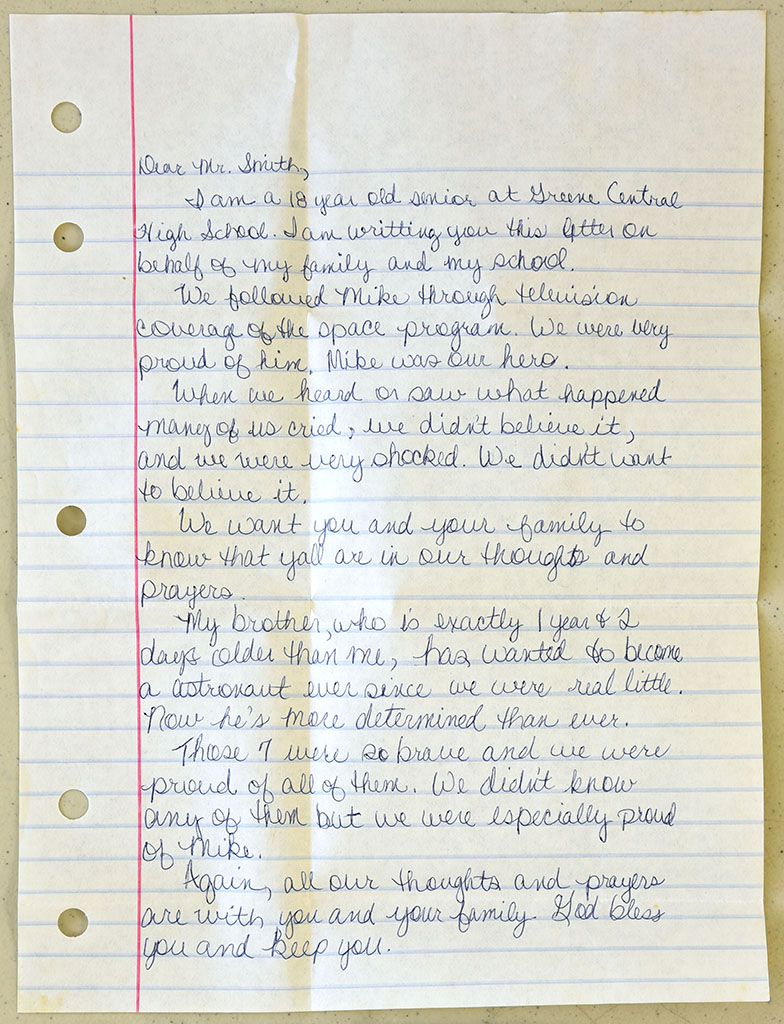 Dear Mr. Smith,
I am a 18 year old senior at Greene Central
High School. I am writting you this letter on
behalf of my family and my school.
We followed Mike through television
coverage of the space program. We were very
proud of him. Mike was our hero.
When we heard or saw what happened
many of us cried, we didn't believe it,
and we were very shocked. We didn't want
to believe it.
We want you and your family to
know that yall are in our thoughts and
prayers.
My brother, who is exactly 1 year & 2
days older than me, has wanted to become
a astronaut ever since we were real little.
Now he's more determined than ever.
Those 7 were so brave and we were
proud of all of them. We didn't know
any of them but we were especially proud
of Mike.
Again, all our thoughts and prayers
are with you and your family. God bless
you and keep you.